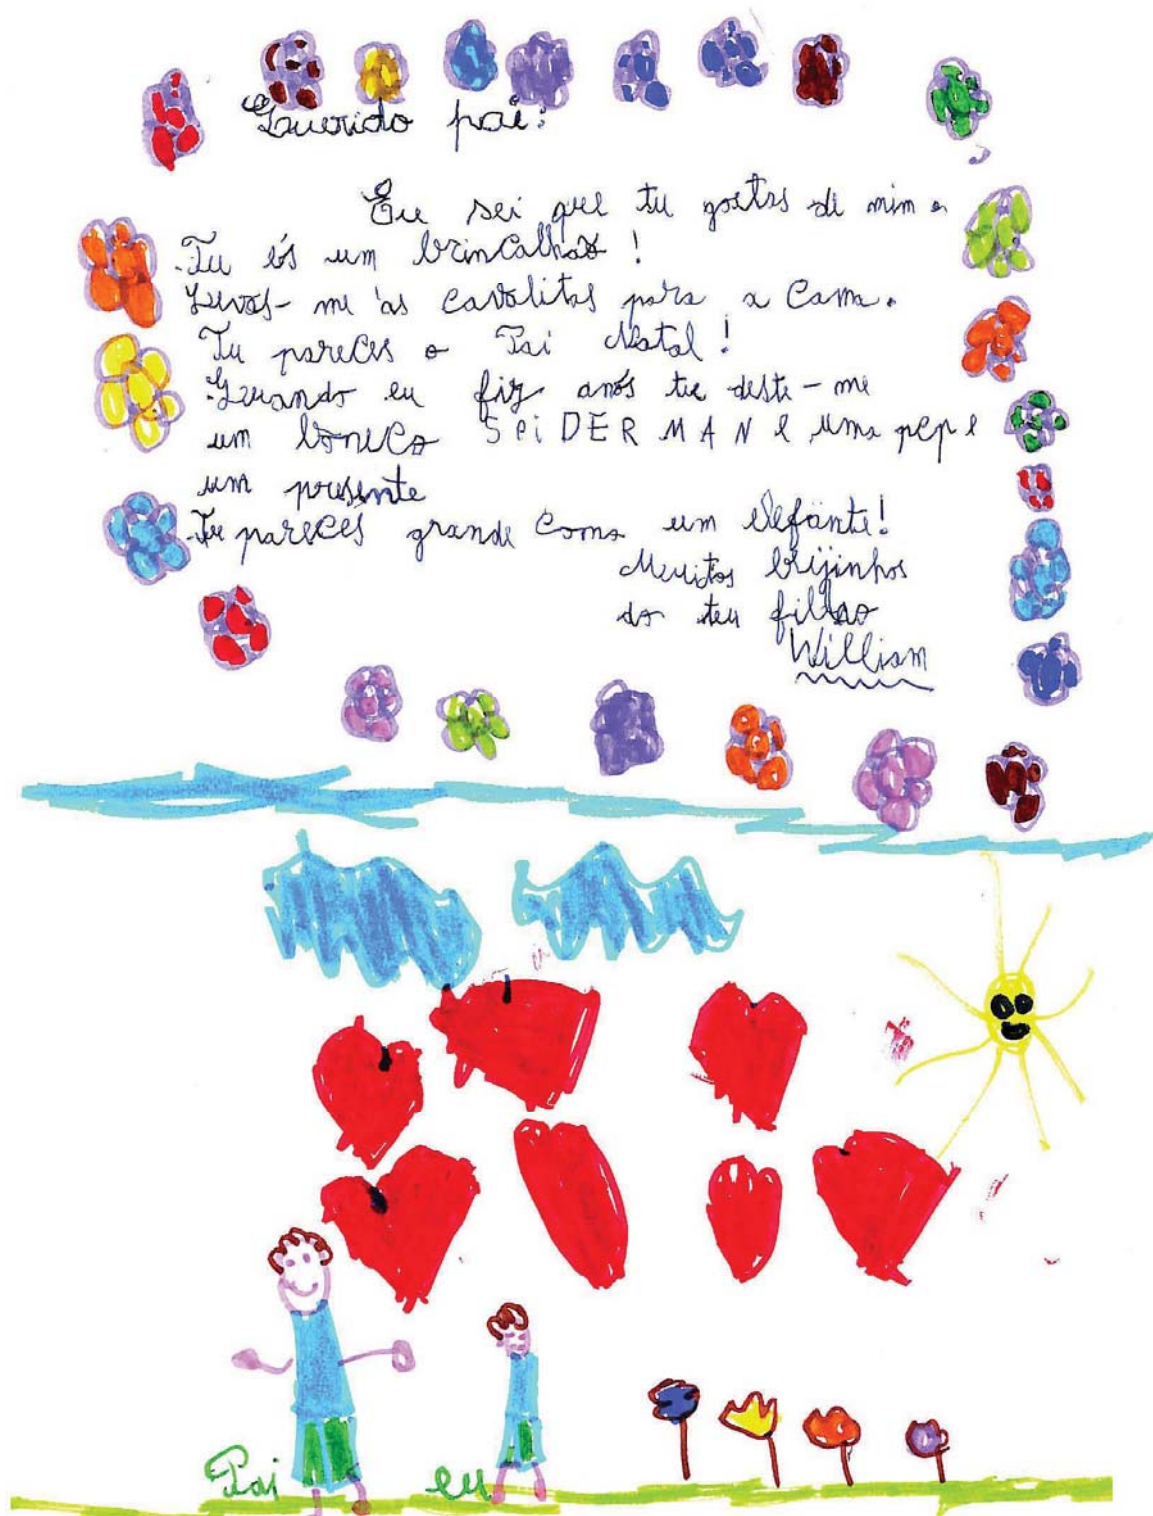 Querido pai:
Eu sei que tu gostas de mim.
Tu és um brincalhão!
Levas-me às cavalitas para a cama.
Tu pareces o Pai Natal!
Quando eu fiz anos tu deste-me
um boneco SPiDERMAN e uma pcp e
um presente
Tu pareces grande como um elefante!
Muitos beijinhos
do teu filho
William
Pai eu